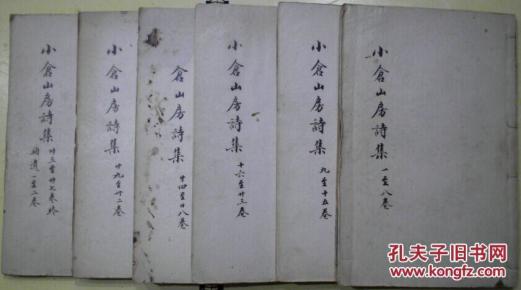 小倉山房詩集 一至八卷
小倉山房詩集 九至十五卷
小倉山房詩集 十六至廿三卷
倉山房詩集 廿四至廿八卷
小倉山房詩集 廿九至卅二卷
小倉山房詩集 卅三至卅七卷終
補遺一至二卷
孔夫子旧书网
KONGFZ.COM